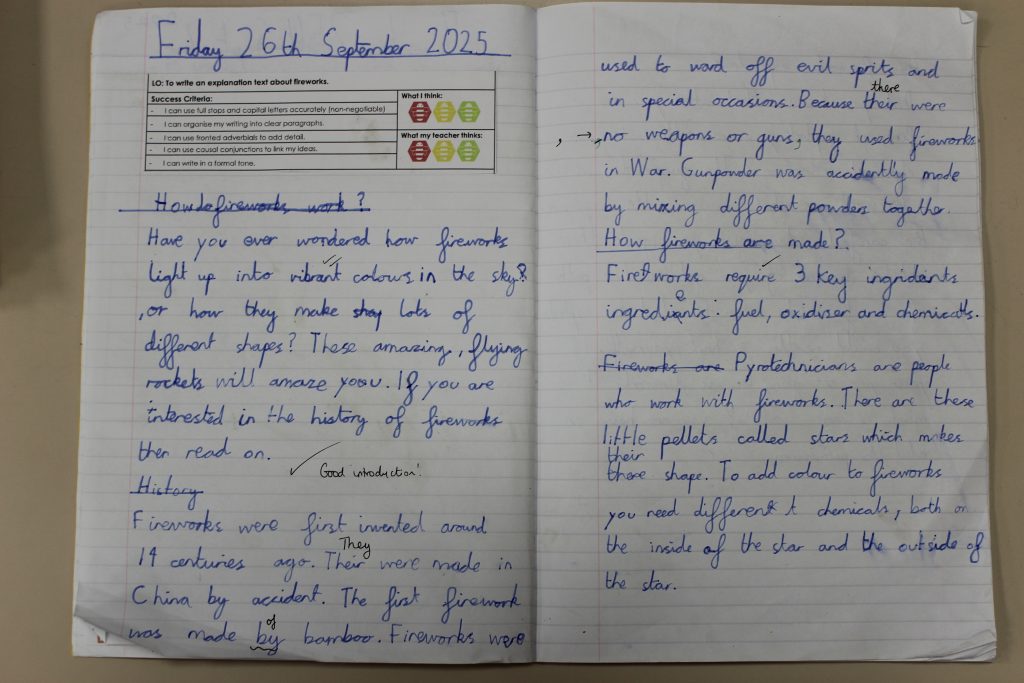 Friday 26th September 2025
LO: To write an explanation text about fireworks.
Success Criteria:
- I can use full stops and capital letters accurately (non-negotiable)
- I can organise my writing into clear paragraphs.
- I can use fronted adverbials to add detail.
- I can use causal conjunctions to link my ideas.
- I can write in a formal tone.
What I think:
What my teacher thinks:
How do fireworks work?
Have you ever wondered how fireworks
light up into vibrant colours in the sky?
, or how they make lots of
different shapes? These amazing, flying
rockets will amaze you. If you are
interested in the history of fireworks
then read on.
Good introduction!
History
Fireworks were first invented around
They
14 centuries ago. Their were made in
China by accident. The first firework
of
was made by bamboo. Fireworks were
used to ward off evil sprits and
there
in special occasions. Because their were
, → no weapons or guns, they used fireworks
in War. Gunpowder was accidently made
by mixing different powders together.
How fireworks are made?
Fireworks require 3 key ingridants
e
ingrediants: fuel, oxidizer and chemicals.
Fireworks are Pyrotechnicians are people
who work with fireworks. There are these
little pellets called stars which makes
their
there shape. To add colour to fireworks
you need different chemicals, both on
the inside of the star and the outside of
the star.